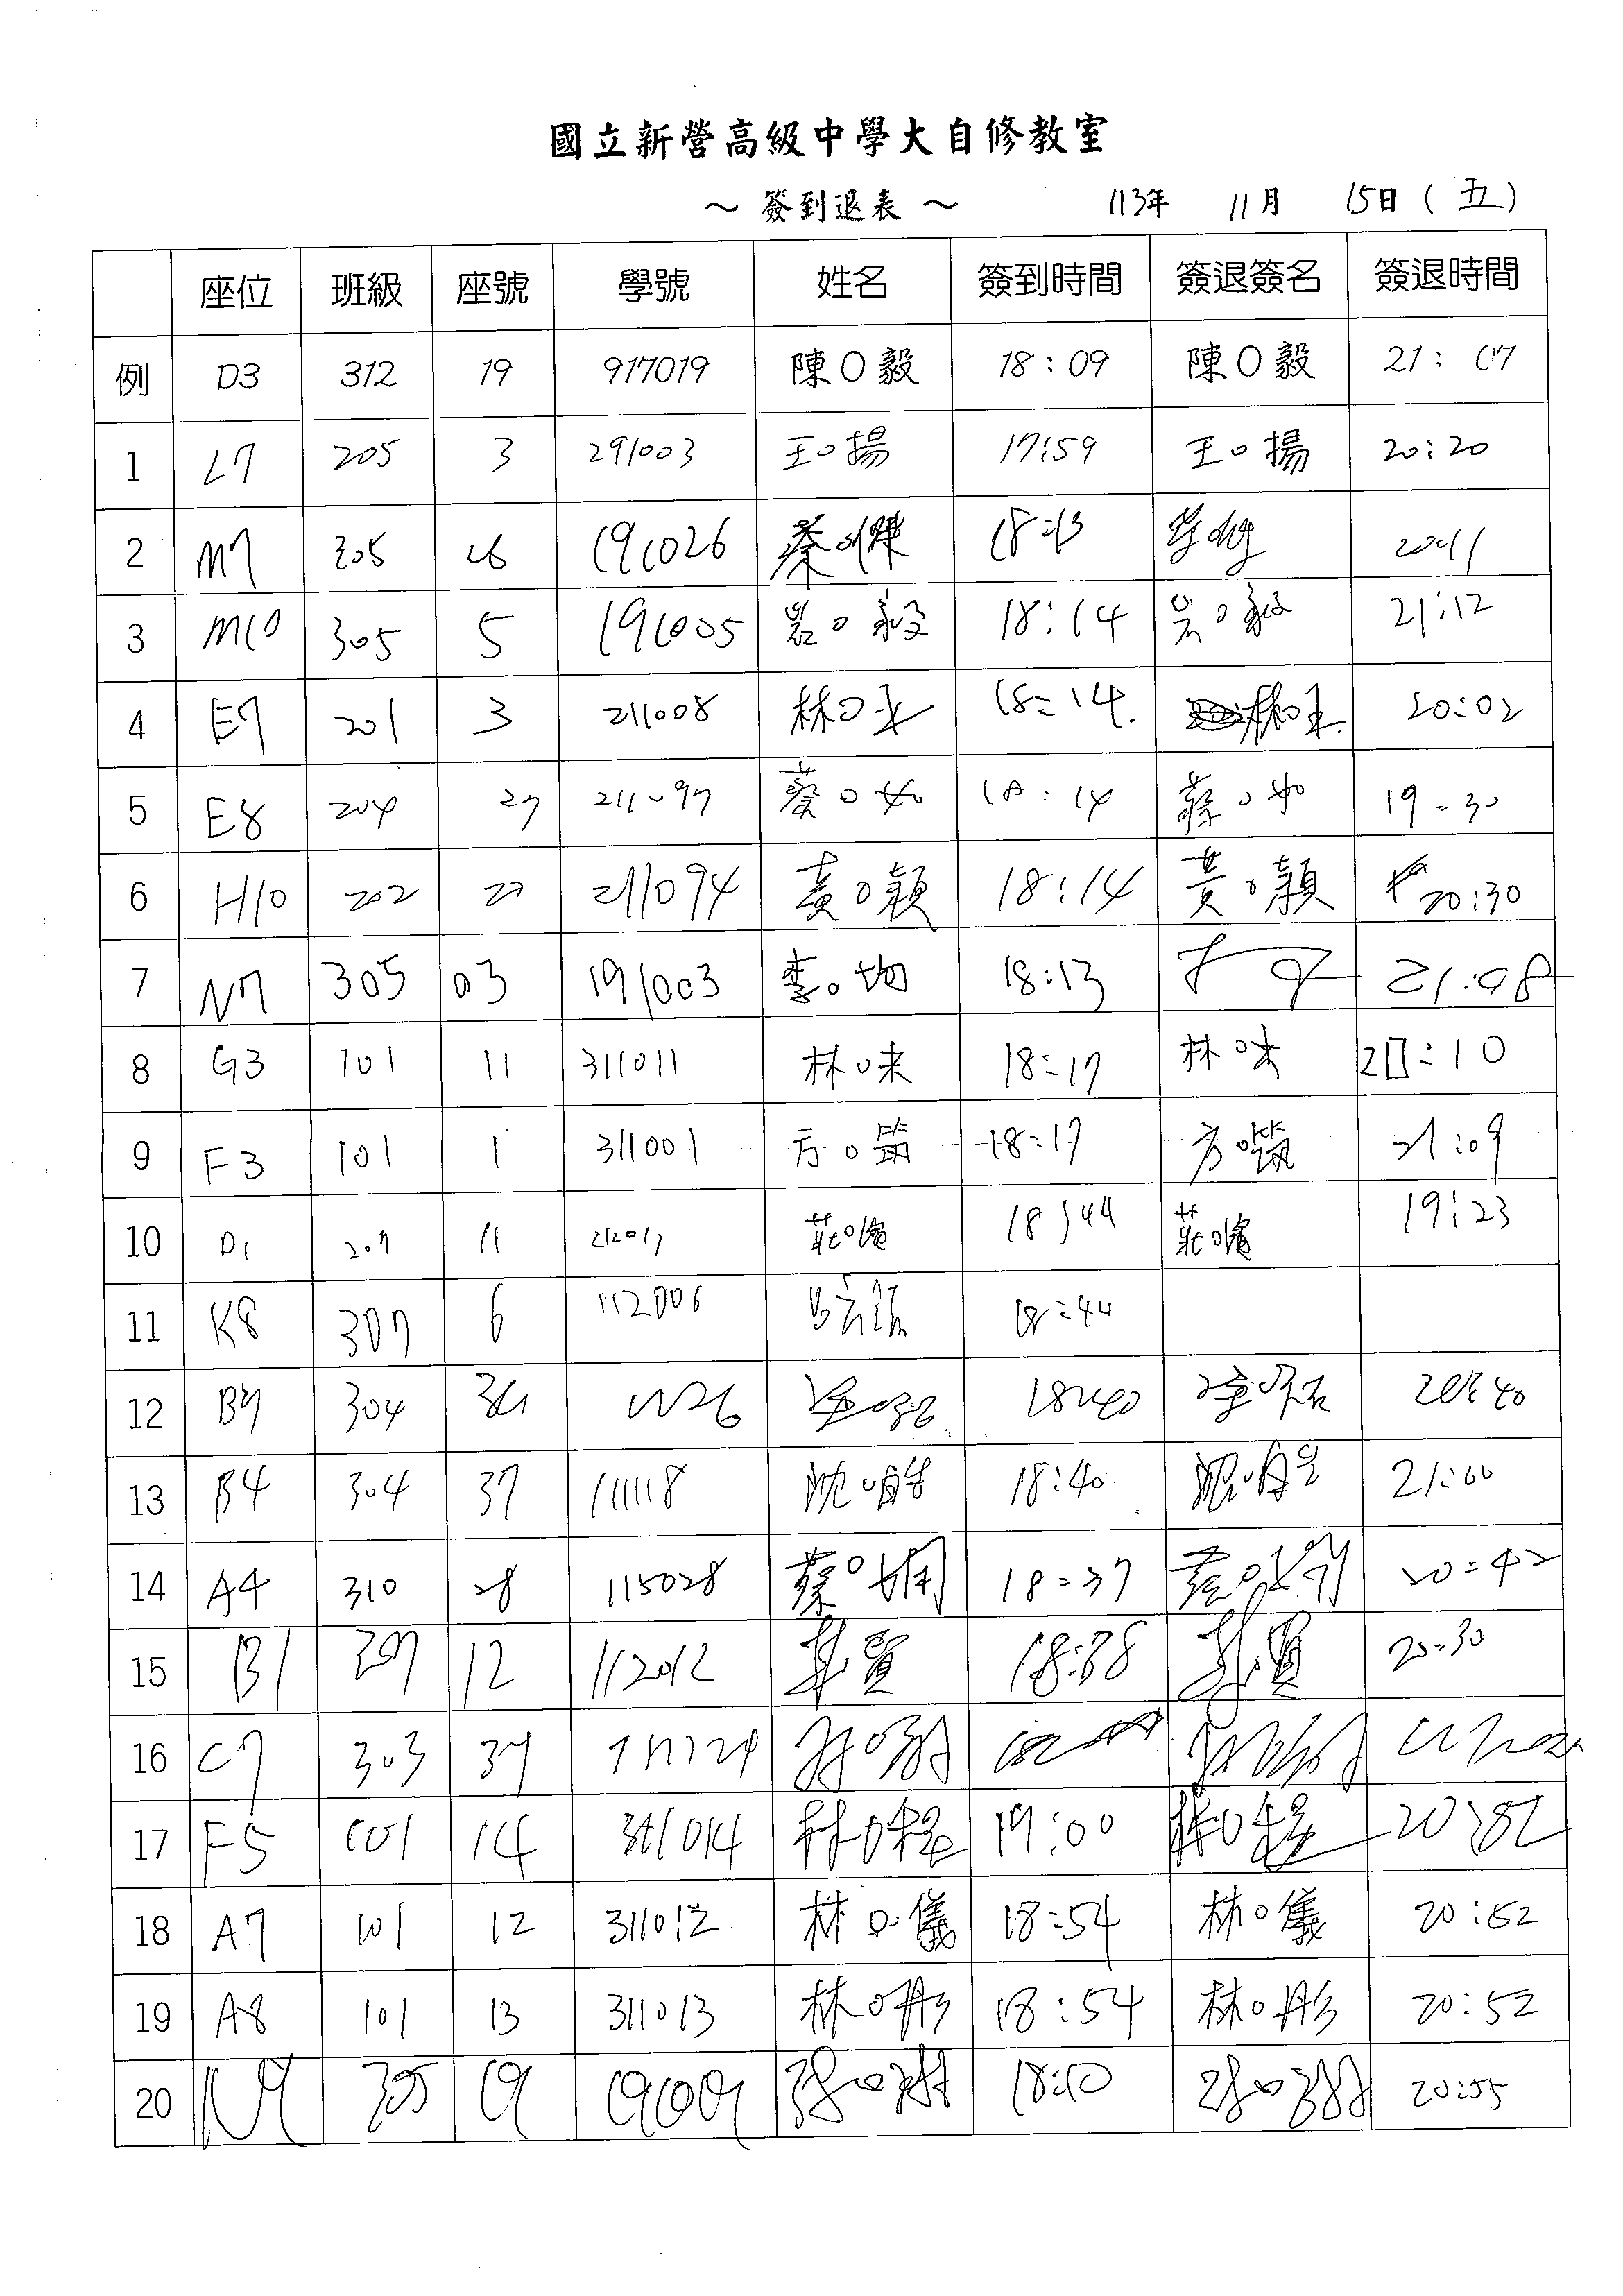 國立新營高級中學大自修教室
～ 簽到退表 ～ 113年 11月 15日(五)
座位 班級 座號 學號 姓名 簽到時間 簽退簽名 簽退時間
例 D3 312 19 917019 陳O毅 18:09 陳O毅 21:07
1 L7 205 3 291003 王O揚 17:59 王O揚 20:20
2 M7 305 26 191026 蔡O傑 18:13
3 M10 305 5 191005 岩O毅 18:14 岩O毅 21:12
4 E7 201 3 211008 林O 18:14 林O 20:02
5 E8 204 27 211097 蔡O如 18:14 蔡O如 19:30
6 H10 202 211094 黃O穎 18:14 黃O穎 20:30
7 N7 305 03 191003 李O均 18:13 21:08
8 G3 101 11 311011 林O 18:17 林O 20:10
9 F3 101 1 311001 方O筑 18:17 方O筑 21:09
10 D1 207 11 莊O 18:44 莊O 19:23
11 K8 307 6 112006 18:44
12 B7 304 18:40 20:40
13 B4 304 37 111118 沈O 18:40 沈O 21:00
14 A4 310 28 115028 蔡O嫻 18:37 20:42
15 B1 307 12 112012 18:38 20:30
16 C7 303 37
17 F5 101 14 311014 林O程 19:00 林O程
18 A7 101 12 311012 林O儀 18:54 林O儀 20:52
19 A8 101 13 311013 林O彤 18:54 林O彤 20:52
20 N9 305 18:10 20:55